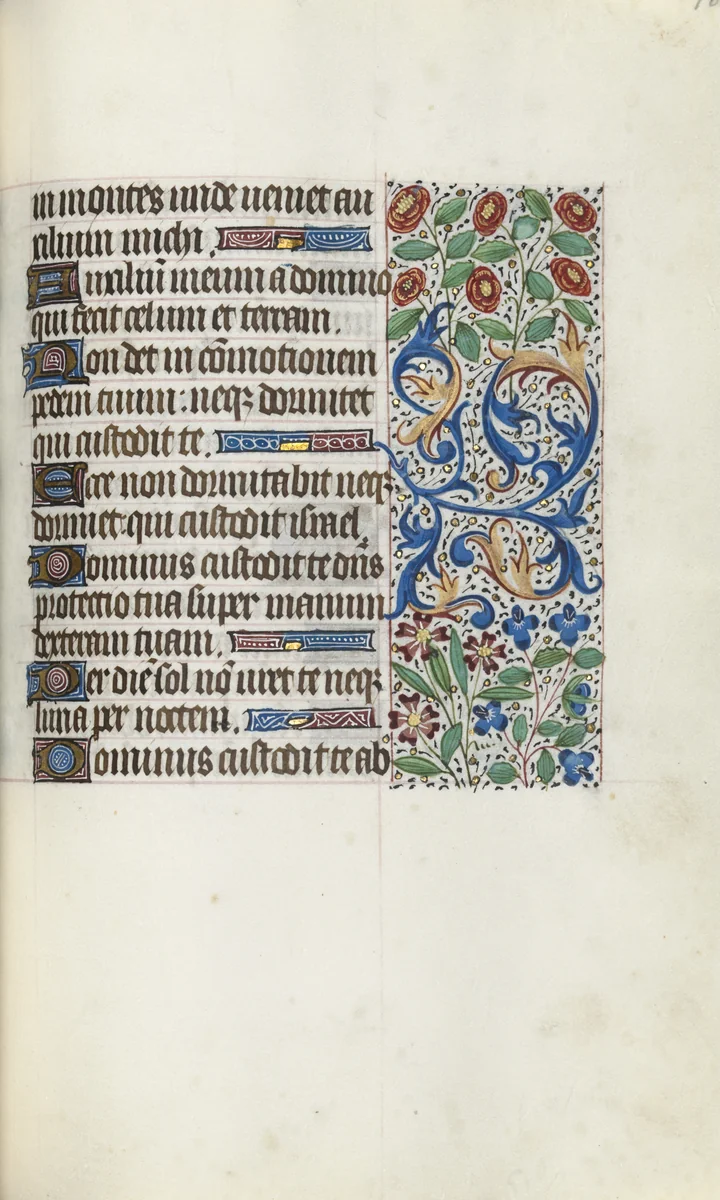 in montes unde veniet au
xilium michi.
Auxiliū meum a domino
qui fecit celum et terram.
Non det in cōmotionem
pedem tuum: neqȝ dormitet
qui custodit te.
Ecce non dormitabit neqȝ
dormiet: qui custodit israel.
Dominus custodit te dn̄s
protectio tua super manum
dexteram tuam.
Per diē sol nō uret te neqȝ
luna per noctem.
Dominus custodit te ab